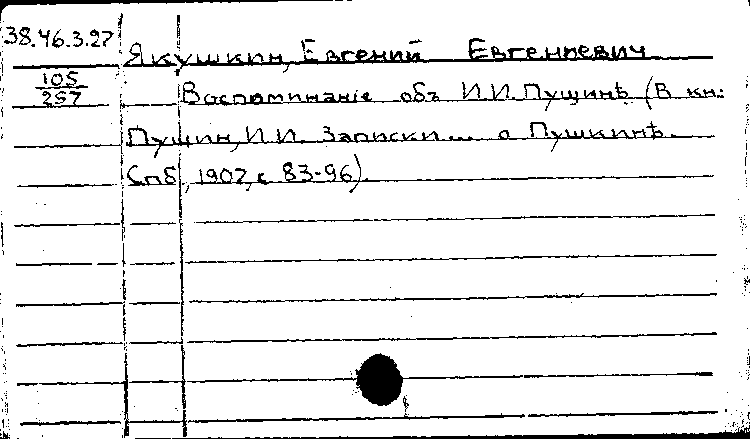 38.46.3.27
Якушкин, Евгений Евгениевич
105
257
Воспоминанiе объ И.И. Пущинѣ (В кн:
Пущин, И.И. Записки... о Пушкинѣ.
Спб, 1907, с 83-96).